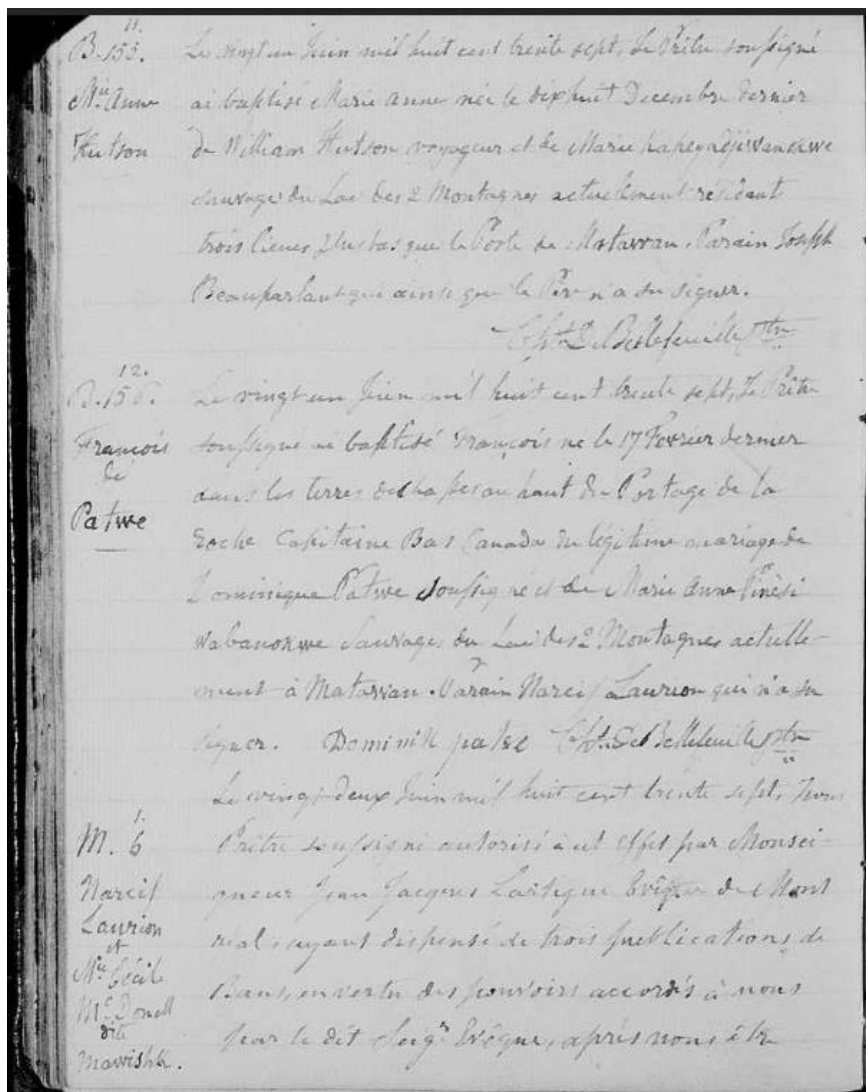 11.
B. 155.
Mie Anne
Hutson
Le vingt un Juin mil huit cent trente sept, Le Prêtre soussigné
ai baptisé Marie Anne née le dix huit Decembre dernier
de William Hutson voyageur et de Marie
sauvage du Lac des 2 Montagnes actuellement résidant
trois lieues plus bas que le Poste de Matawan. Parain Joseph
Beauparlant qui ainsi que le Père n'a su signer.
Chs. De Bellefeuille Ptre
12.
B. 156.
François
de
Patwe
Le vingt un Juin mil huit cent trente sept, Le Prêtre
soussigné ai baptisé François né le 17 Fevrier dernier
dans les terres de chasse au haut du Portage de la
Roche Capitaine Bas Canada du légitime mariage de
Dominique Patwe soussigné et de Marie Anne Pinèsi
wabanokwe Sauvages du Lac des 2 Montagnes actuelle-
ment à Matawan. Parain Narcis Laurion qui n'a su
signer. Dominik patwe Chs. De Bellefeuille Ptre
1.
M. 6
Narcis
Laurion
et
Mie Cécile
Mc Donell
dite
Mawishk.
Le vingt deux Juin mil huit cent trente sept, Nous
Prêtre soussigné autorisé à cet effet par Monsei-
gneur Jean Jacques Lartigue Evêque de Mont
réal, ayant dispensé de trois publications de
Bans, en vertu des pouvoirs accordés à nous
par le dit Seigr Evêque, après nous être